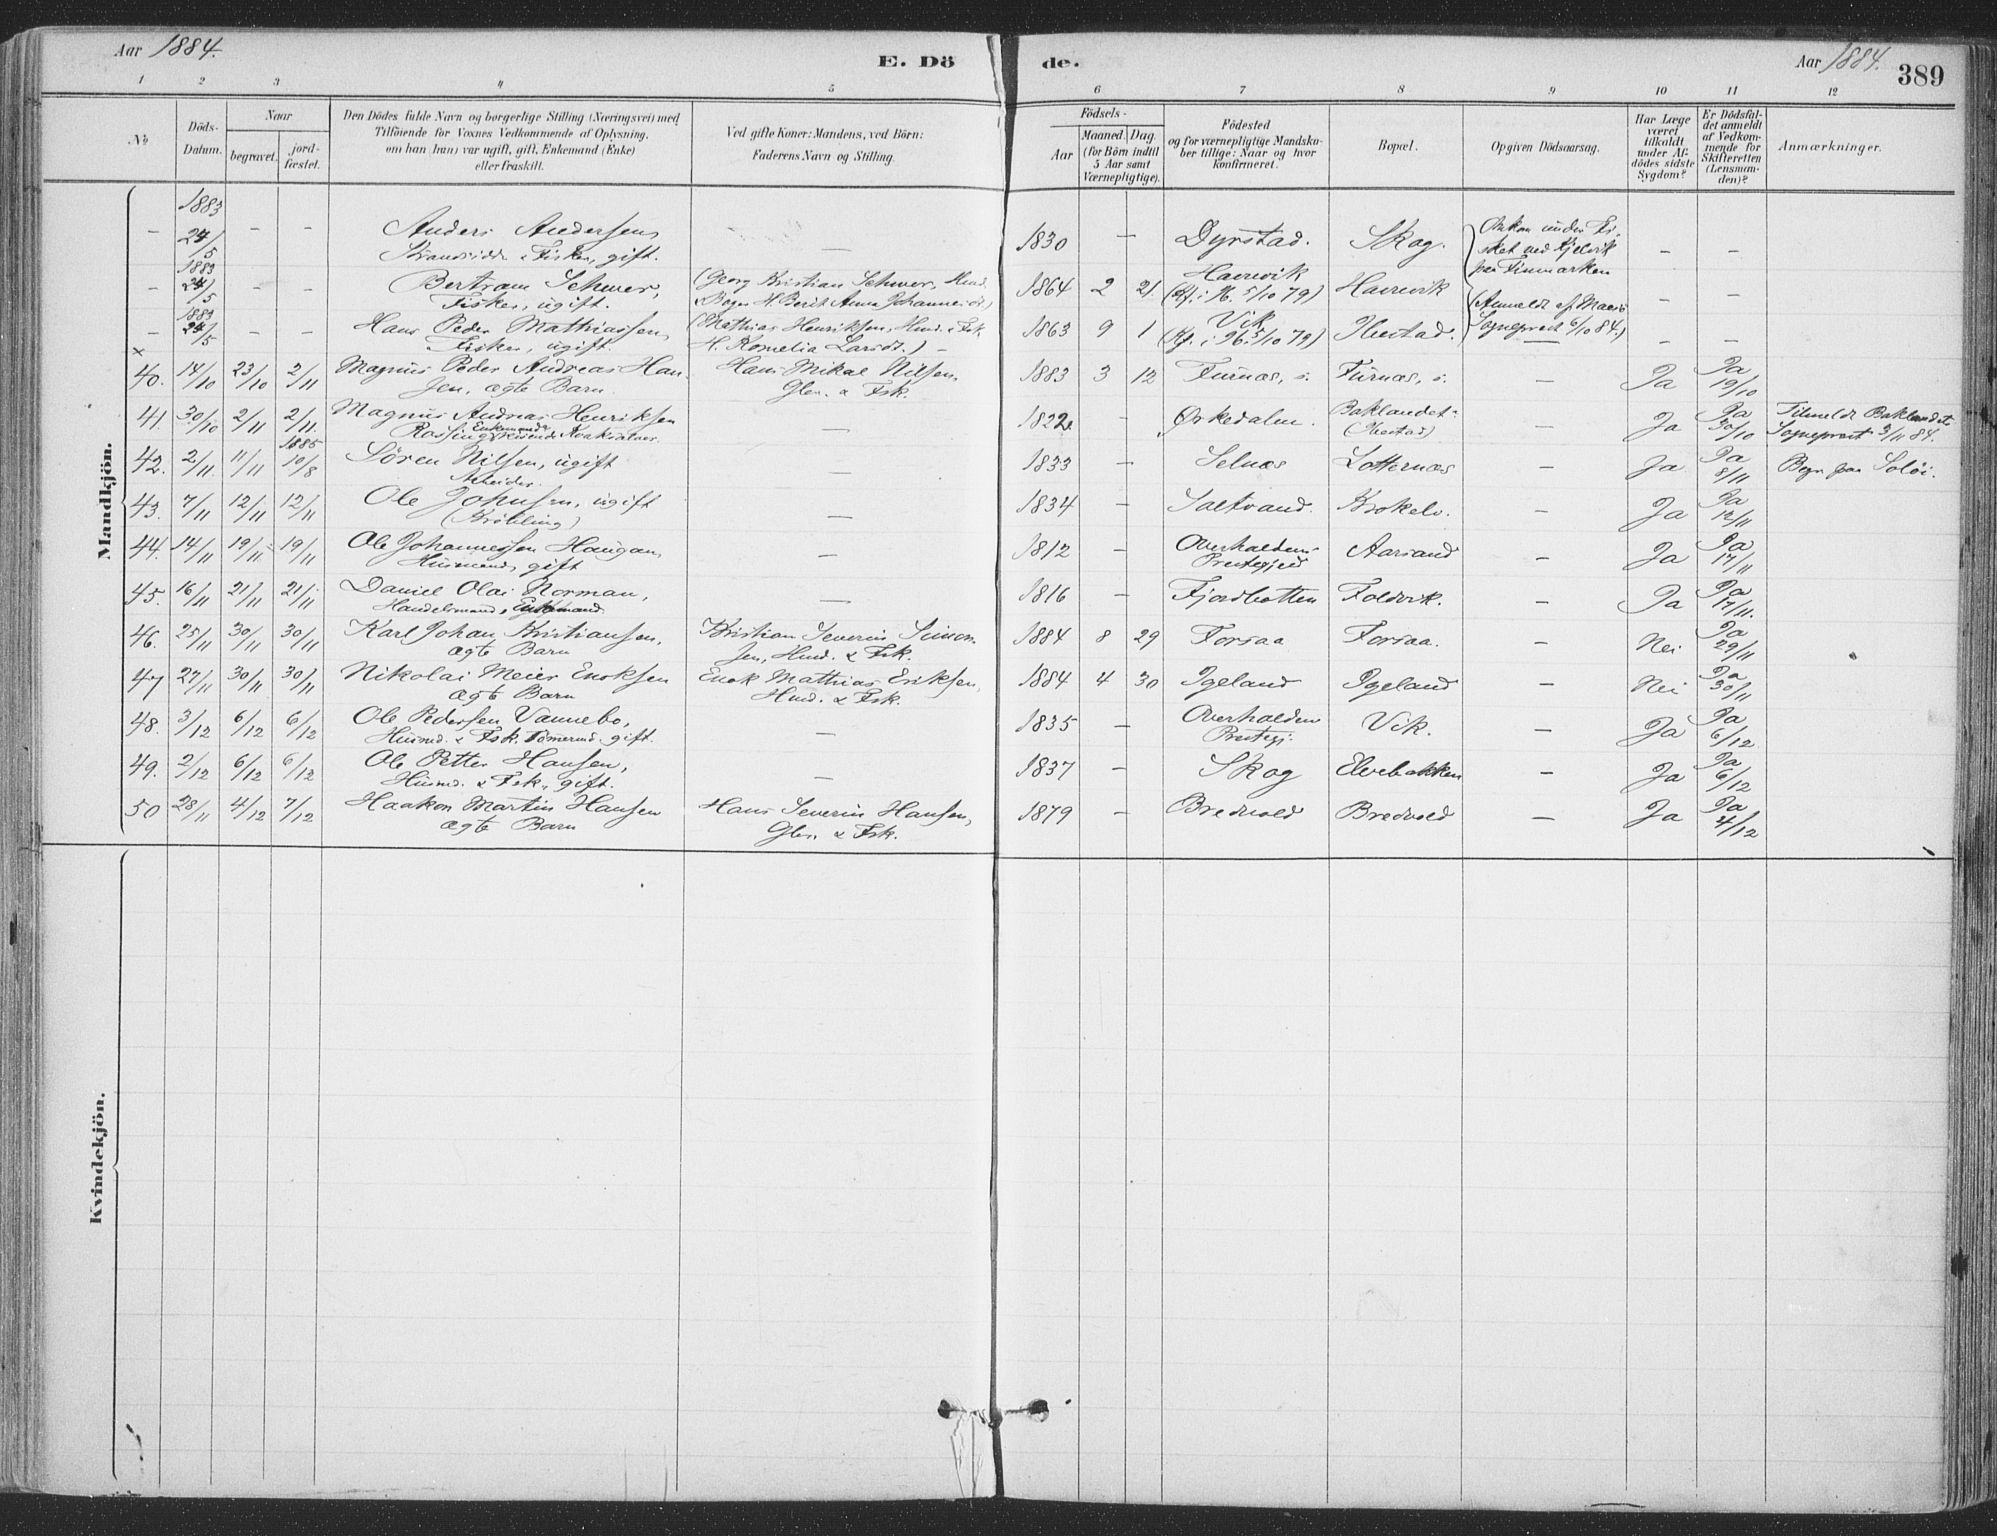 Aar 1884.
E. Dö
de.
Aar 1884.
389
1 2 3 4 5 6 7 8 9 10 11 12
No.
Döds-Datum.
Naar
begravet.
jord-fæstet.
Den Dödes fulde Navn og borgerlige Stilling (Næringsvei) med
Tilföiende for Voxnes Vedkommende af Oplysning,
om han (hun) var ugift, gift, Enkemand (Enke)
eller fraskilt.
Ved gifte Koner: Mandens, ved Börn:
Faderens Navn og Stilling.
Födsels-
Aar
Maaned. Dag.
(for Börn indtil
5 Aar samt
Værnepligtige).
Födested
og for værnepligtige Mandska-
ber tillige: Naar og hvor
konfirmeret.
Bopæl.
Opgiven Dödsaarsag.
Har Læge
været
tilkaldt
under Af-
dödes sidste
Sygdom?
Er Dödsfal-
det anmeldt
af Vedkom-
mende for
Skifteretten
(Lensman-
den)?
Anmærkninger.
Mandkjön.
– 1883 24/5 – – Anders Andersen, – 1830 – Dyrstad. Skog. – –
Strandsidder & Fisker, gift.
Omkom under Fi-
sket ved Kjelvik
paa Finmarken
– 1883 24/5 – – Bertram Schwer, (Georg Kristian Schwer, Hmd. 1864 2 21 Havnvik Havnvik – –
Fisker, ugift. H. Berit Anna Johannesdt.) (Kf. i 5/10 79)
(Anmeldt af Maasø
Sognepræst 6/10 84.)
– 1883 24/5 – – Hans Peder Mathiassen, (Mathias Henriksen, Hmd. & Fsk. 1863 9 1 Vik Ibestad. – – –
Fisker, ugift. H. Kornelia Larsdt.) – (Kf. i 5/10 79)
× 40. 14/10 23/10 2/11 Magnus Peder Andreas Han- Hans Mikal Nilsen, 1883 3 12 Furnæs, Furnæs, – Ja Ja 19/10
sen, ægte Barn Fsk.
41. 30/10 2/11 2/11. Magnus Andreas Henriksen – 1822 – Orkedalen. Baklandet – Ja Ja 30/10 Tilmeldt Baklandets
Rossing, Enkemand (Ibestad) Sognepræst 3/11 84.
42. 2/11. 11/11 1885 10/8 Sören Nilsen, ugift – 1833 – Selnæs Lotternæs – Ja Ja 8/11 Begr. paa Soløi.
Arbeider.
43. 7/11 12/11 12/11 Ole Johnsen, ugift – 1834 – Saltvand. Krokelv. Ja Ja 12/11
44. 14/11 19/11 19/11 Ole Johannessen Haugan, – 1812 – Overhalden Aarsand – Ja Ja 17/11
Husmand, gift Prestegjeld
45. 16/11 21/11 21/11 Daniel Olai Norman, – 1816 Fjordbotten Foldvik. – Ja Ja 17/11.
Handelsmand, Enkemand
46. 25/11 30/11 30/11 Karl Johan Kristiansen, Kristian Severin Simon- 1884 8 29 Forsaa Forsaa. – Nei Ja 29/11
ægte Barn sen, Hmd. & Fsk.
47 27/11 30/11 30/11 Nikolai Meier Enoksen Enok Mathias Eriksen, 1884 4 30 Igeland Igeland – Nei Ja 30/11
ægte Barn Hmd. & Fsk.
48. 3/12 6/12 6/12 Ole Pedersen Vannebo, – 1835 – Overhalden Vik. – Ja Ja 6/12
Husmd. & Fsk. Tömermd. gift. Prestegj.
49. 2/12 6/12 6/12 Ole Petter Hansen, – 1837 – Skog Elvebakken – Ja Ja 6/12
Husmd. & Fsk., gift.
50 28/11 4/12 7/12 Haakon Martin Hansen Hans Severin Hansen, 1879 – Bredvold Bredvold – Ja Ja 4/12
ægte Barn & Fsk.
Kvindekjön.